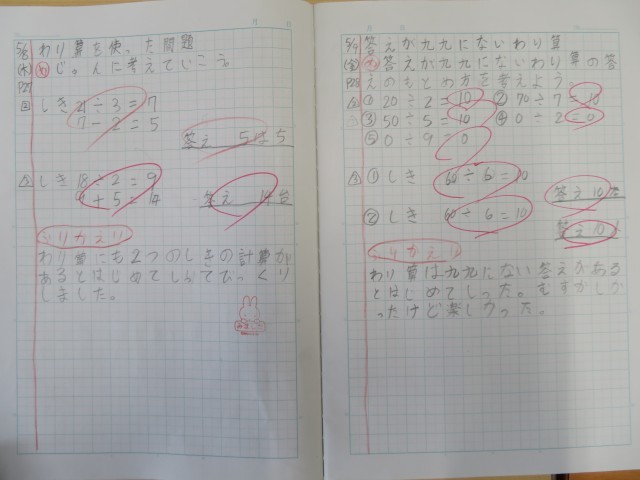 5/8 わり算を使った問題
(木) め じゅんに考えていこう。
P27
しき 21÷3=7
7-2=5
答え 5
しき 18÷2=9
9+5=14
答え 14台
ふりかえり
わり算にも2つのしきの計算が
あるとはじめてしってびっくり
しました。
5/9 答えが九九にないわり算
(金) め 答えが九九にないわり算の答
P28 えのもとめ方を考えよう。
① 20÷2=10 ② 70÷7=10
③ 50÷5=10 ④ 0÷2=0
⑤ 0÷9=0
① しき 60÷6=10
答え 10
② しき 60÷6=10
答え 10
ふりかえり
わり算は九九にない答えがある
とはじめてしった。むずかしか
ったけど楽しかった。